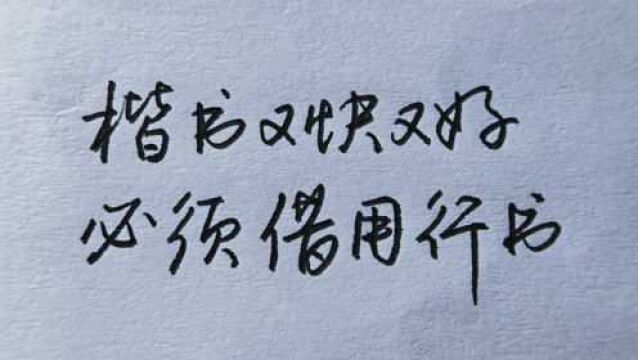 楷书又快又好
必须借用行书